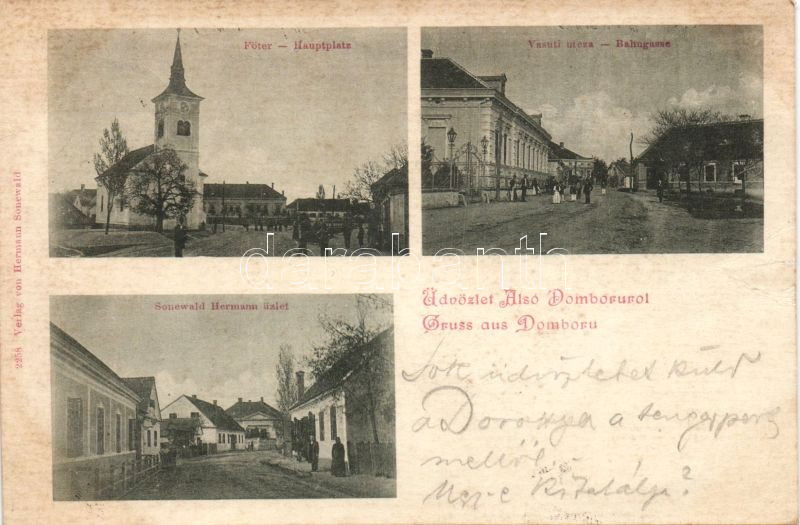 Főter – Hauptplatz
Vasuti utcza – Bahngasse
Sonewald Hermann üzlet
2258 Verlag von Hermann Sonewald
Üdvözlet Alsó Domboruról
Gruss aus Domboru
darabanth
Sok üdvözletet küld
a Doroszyek a tengerpart
mellől.
Ugy-e kitalálja?